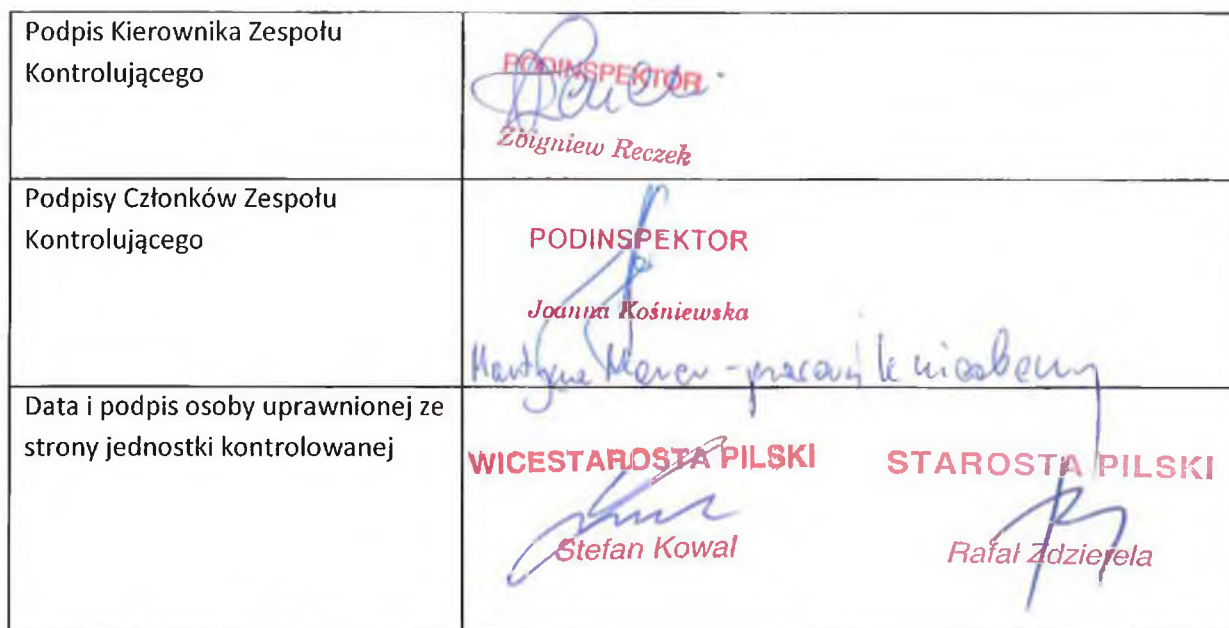 Podpis Kierownika Zespołu
Kontrolującego
PODINSPEKTOR
Zbigniew Reczek
Podpisy Członków Zespołu
Kontrolującego
PODINSPEKTOR
Joanna Kośniewska
Martyna - pracownik nieobecny
Data i podpis osoby uprawnionej ze
strony jednostki kontrolowanej
WICESTAROSTA PILSKI
Stefan Kowal
STAROSTA PILSKI
Rafał Zdzierela